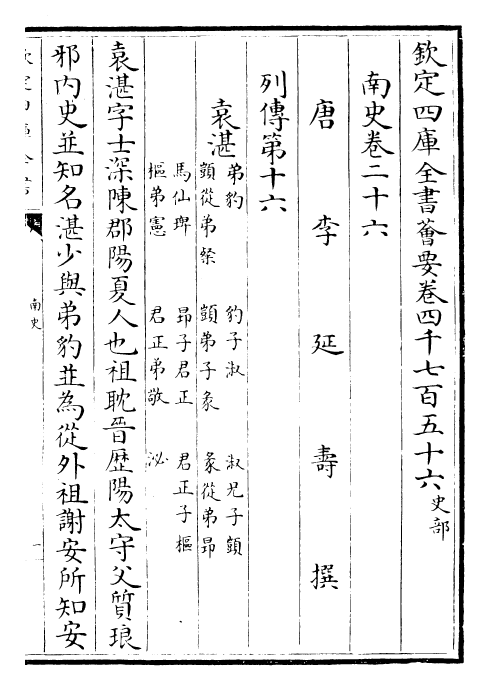 欽定四庫全書薈要卷四千七百五十六史部
南史卷二十六
唐李延壽撰
列傳第十六
袁湛
弟豹 豹子淑 淑兄子顗
顗從弟粲 顗弟子彖 彖從弟昂
馬仙琕 昂子君正 君正子樞
樞弟憲 君正弟敬 泌
袁湛字士深陳郡陽夏人也祖耽晉歷陽太守父質琅
邪内史並知名湛少與弟豹並為從外祖謝安所知安
南史
一